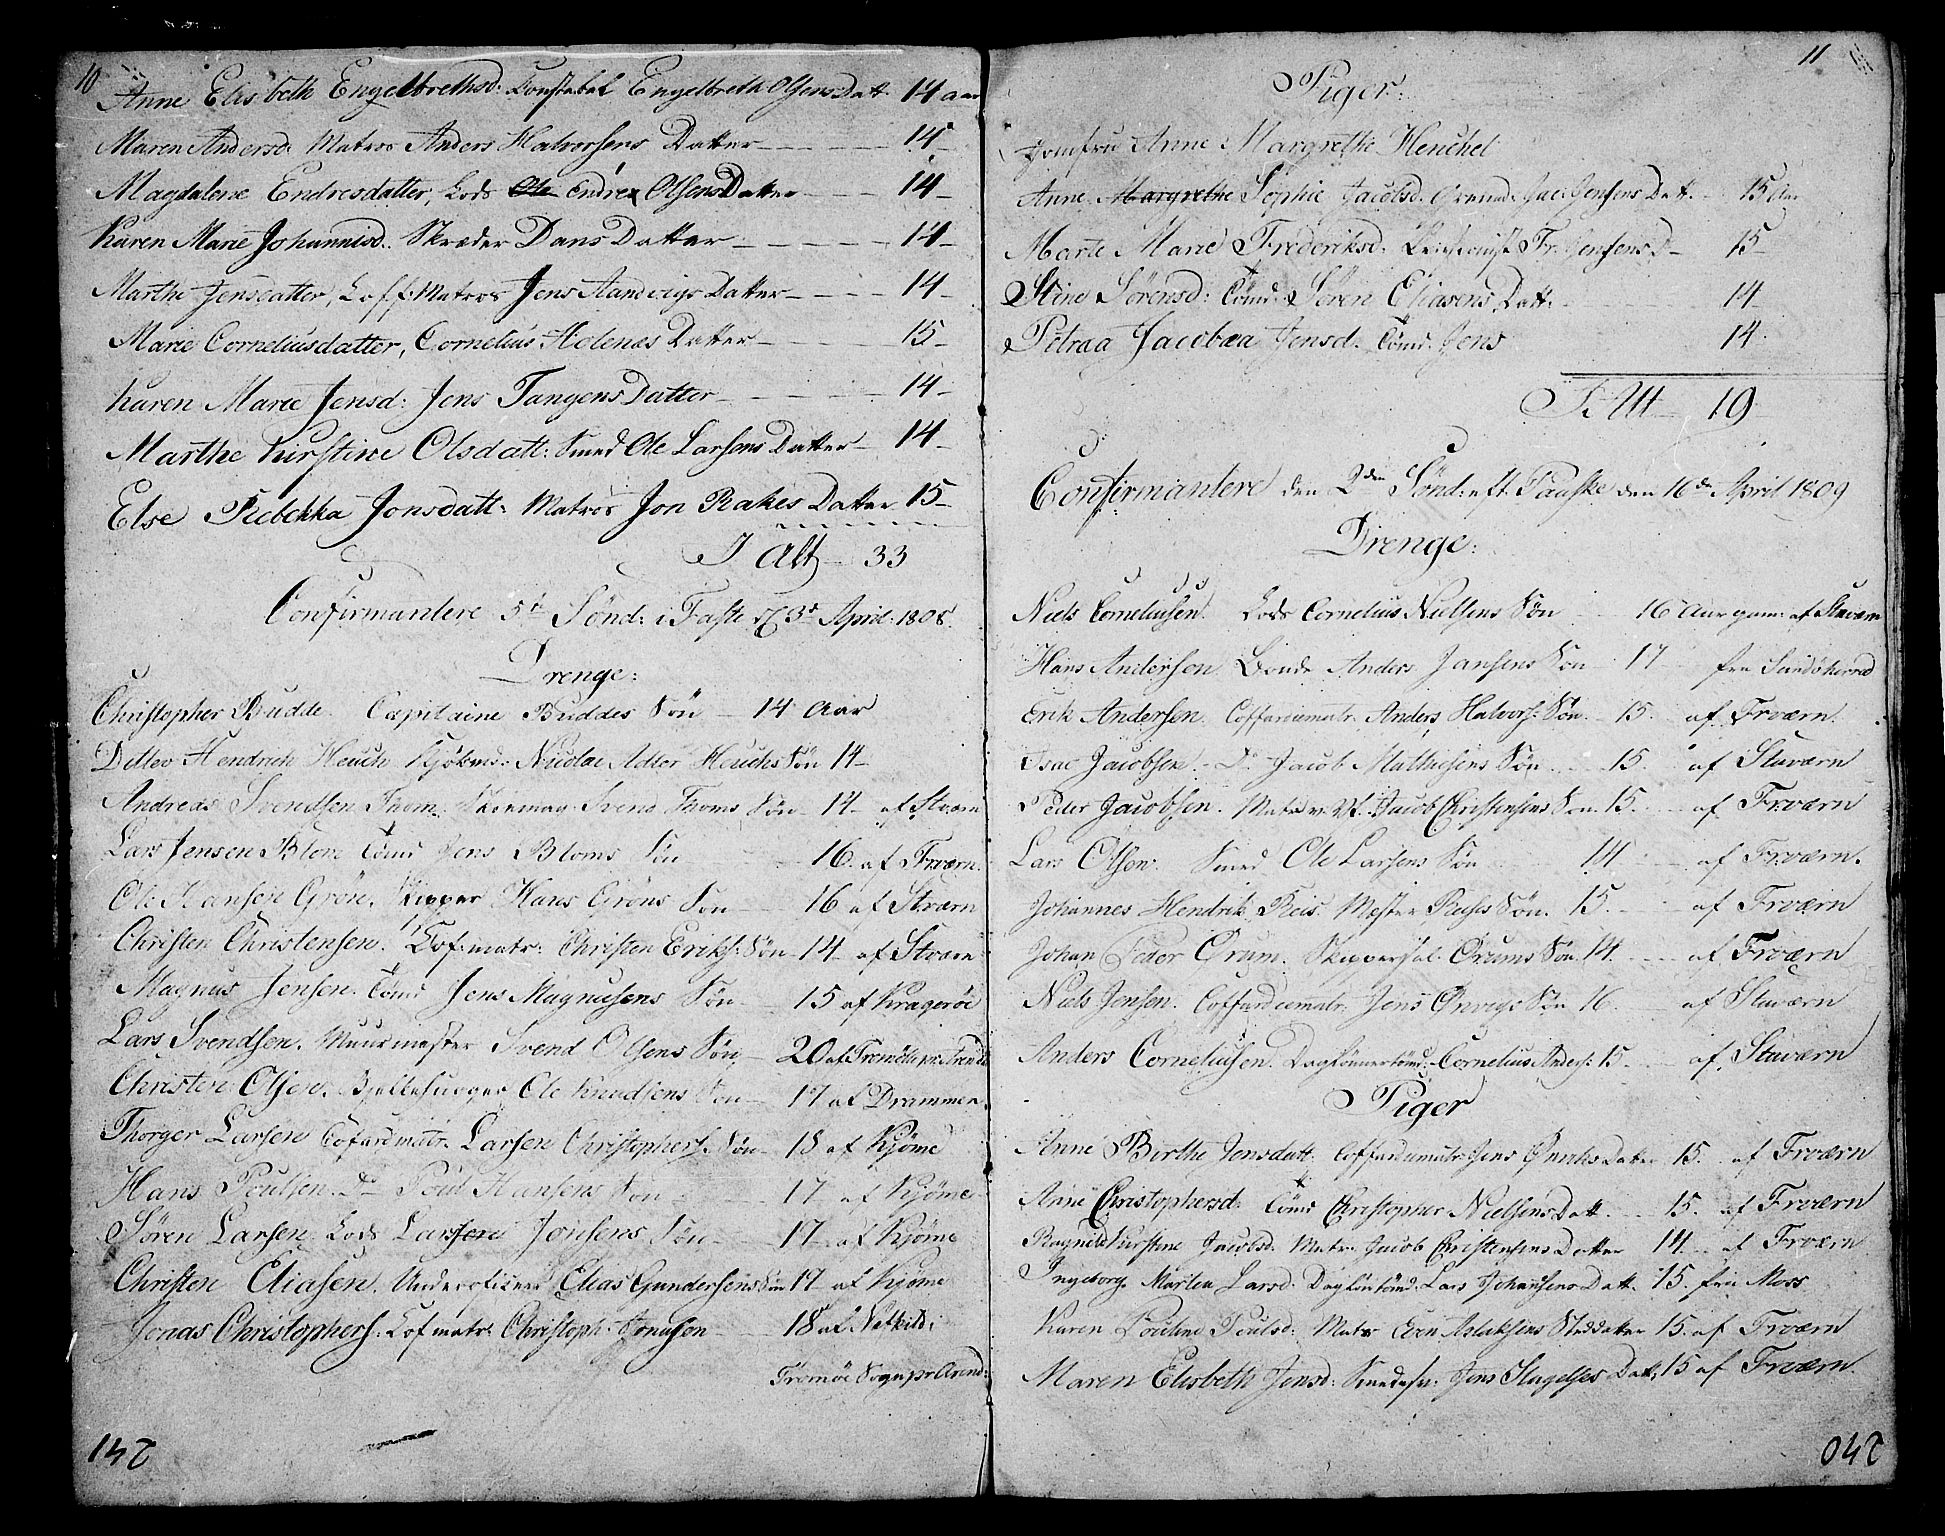 10
Anne Elisbeth Engelbrethsd: Constabel Engelbreth Olsens Datt. 14 aar
Maren Andersd: Matros Anders Halvorsens Datter 14
Magdalene Endresdatter, Lods Ole Endre Olsens Datter 14
Karen Marie Johannisd. Skræder Dans Datter 14
Marthe Jensdatter, Coff: Matros Jens Aandvigs Datter 14
Marie Corneliusdatter, Cornelius Helenæs Datter 15
Karen Marie Jensd: Jens Tangens Datter 14
Marthe Kirstine Olsdatt: Smed Ole Larsens Datter 14
Else Rebekka Jonsdatt: Matros Jon Rakes Datter 15
I Alt 33
Confirmantere 5te Sønd: i Faste 3d April 1808.
Drenge:
Christopher Budde. Capitaine Buddes Søn 14 Aar
Detlev Hendrich Heuch Kjøbmd: Nicolai Adler Heuchs Søn 14
Andreas Svendsen Thom. Svend Thoms Søn 14 af Stværn
Lars Jensen Blom Tømd Jens Bloms Søn 16. af Frværn.
Ole Hansen Grøn. Skipper Hans Grøns Søn 16 af Stværn
Christen Christensen. Cof: matr: Christen Eriks: Søn 14 af Stværn
Magnus Jensen. Tømd Jens Magnusens Søn 15 af Kragerøe
Lars Svendsen. Muurmester Svend Olsens Søn 20 af Tromöe pr. Arendl
Christen Olsen. Ole Knudsens Søn 17 af Drammen.
Thorger Larsen Cofardmatr. Larsen Christophers. Søn 18 af Kjøme
Hans Poulsen. Do Poul Hansens Søn 17 af Kjøme
Søren Larsen. Lods Larsen Jonsens Søn 17 af Kjøme
Christen Eliasen. Underofiseer Elias Gundersens Søn 17 af Kjøme
Jonas Christophers: Cof matr: Christoph: Jonasen 18 af
Tromöe Sogn pr Arend:
142
11
Piger:
Jomfru Anne Margrethe Heuchel
Anne Margrethe Sophie Jacobsd. Jac: Jensens Datt. 15 Aar
Marte Marie Frederiksd: Fr. Jensens D 15
Stine Sørensd: Tømd: Søren Eliasens Datt: 14
Petraa Jacobæa Jensd: Tømd: Jens 14.
I. Alt 19
Confirmantere den 2den Sønd: eft. Paaske den 16de April 1809
Drenge:
Niels Corneliusen. Lods Cornelius Nielsens Søn 16 Aar gam: af Staværn
Hans Andersen Bonde Anders Jansens Søn 17 fra Sandsherred
Erik Andersen. Coffardiematr. Anders Halvors: Søn. 15. af Frværn.
Isac Jacobsen. Do Jacob Mathisens Søn 15. af Staværn
Peder Jacobsen. Matr: v. Vf. Jacob Christensens Søn 15. af Frværn
Lars Olsen. Smed Ole Larsens Søn 14 af Frværn.
Johannes Hendrik Reis. Mester Reises Søn. 15. af Frværn
Johan Peder Ørum. Skipper sal. Ørums Søn 14. af Frværn
Niels Jensen. Coffardiematr. Jens Ønvigs Søn 16. af Staværn
Anders Corneliusen. Daglönnertömd: Cornelius Anders: 15. af. Staværn
Piger
Anne Birthe Jensdatt. Coffardiematr: Jens Datter 15. af Frværn
Anne Christophersd: Tømd Christopher Nielsens Datt. 15. af Frværn
Ragnild Kirstine Jacobsd. Matr. Jacob Christensens Datter 14. af Frværn
Ingeborg Martea Larsd: Daglöntömd: Lars Johansens Datt. 15. fra Moss
Karen Pouline Poulsd: Matr Even Aslaksens Steddatter 15. af Frværn
Maren Elisbeth Jensd: Smedesv: Jens Slagelses Datt, 15 af Frværn.
240